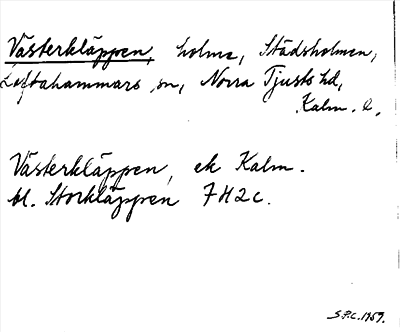 Västerkläppen, holme, Städsholmen,
Loftahammars sn, Norra Tjusts hd,
Kalm. l.
Västerkläppen, ek Kalm.
bl. Storkläppen 7H2c.
S.P.C. 1959.